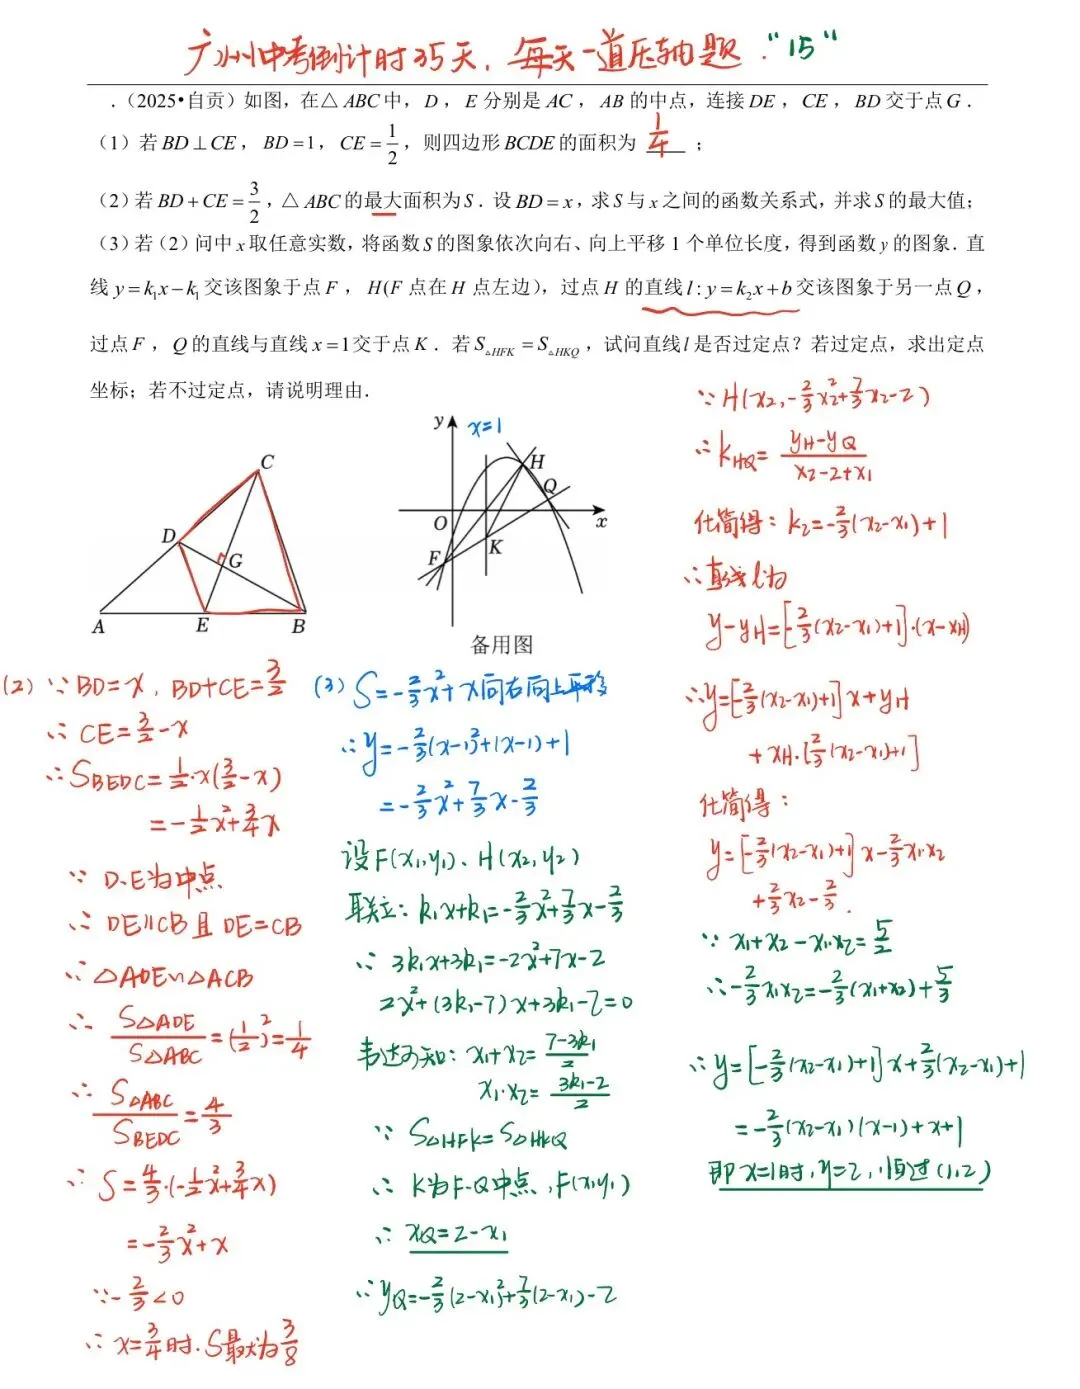 广州中考倒计时35天，每天一道压轴题．“15”
．（2025•自贡）如图，在△ABC中，D，E分别是AC，AB的中点，连接DE，CE，BD交于点G．
（1）若BD⊥CE，BD=1，CE=1/2，则四边形BCDE的面积为 1/4 ；
（2）若BD+CE=3/2，△ABC的最大面积为S．设BD=x，求S与x之间的函数关系式，并求S的最大值；
（3）若（2）问中x取任意实数，将函数S的图象依次向右、向上平移1个单位长度，得到函数y的图象．直
线y=k₁x−k₁交该图象于点F，H(F点在H点左边)，过点H的直线l:y=k₂x+b交该图象于另一点Q，
过点F，Q的直线与直线x=1交于点K．若S△HFK=S△HKQ，试问直线l是否过定点？若过定点，求出定点
坐标；若不过定点，请说明理由．
C
D
G
A
E
B
y
x=1
H
Q
O
x
K
F
备用图
(2) ∵BD=x，BD+CE=3/2
∴CE=3/2-x
∴S_BEDC=1/2·x(3/2-x)
=-1/2x²+3/4x
∵D、E为中点
∴DE∥CB且DE=CB
∴△ADE∽△ACB
∴S△ADE/S△ABC=(1/2)²=1/4
∴S△ABC/S_BEDC=4/3
∴S=4/3·(-1/2x²+3/4x)
=-2/3x²+x
∵-2/3<0
∴x=3/4时．S最大为3/8
(3) S=-2/3x²+x向右向上平移
∴y=-2/3(x-1)²+(x-1)+1
=-2/3x²+7/3x-2/3
设F(x₁,y₁)、H(x₂,y₂)
联立：k₁x+k₁=-2/3x²+7/3x-2/3
∴3k₁x+3k₁=-2x²+7x-2
2x²+(3k₁-7)x+3k₁-2=0
韦达可知：x₁+x₂=(7-3k₁)/2
x₁·x₂=(3k₁-2)/2
∵S△HFK=S△HKQ
∴K为F、Q中点，F(x₁,y₁)
∴x_Q=2-x₁
∴y_Q=-2/3(2-x₁)²+7/3(2-x₁)-2
∵H(x₂,-2/3x₂²+7/3x₂-2)
∴k_HQ=(y_H-y_Q)/(x₂-2+x₁)
化简得：k₂=-2/3(x₂-x₁)+1
∴直线l为
y-y_H=[-2/3(x₂-x₁)+1]·(x-x_H)
∴y=[-2/3(x₂-x₁)+1]x+y_H
+x_H·[2/3(x₂-x₁)+1]
化简得：
y=[-2/3(x₂-x₁)+1]x-2/3x₁x₂
+2/3x₂-2/3．
∵x₁+x₂-x₁·x₂=5/2
∴-2/3x₁x₂=-2/3(x₁+x₂)+5/3
∴y=[-2/3(x₂-x₁)+1]x+2/3(x₂-x₁)+1
=-2/3(x₂-x₁)(x-1)+x+1
即x=1时，y=2，恒过(1,2)